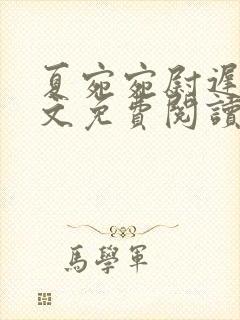 夏宛宛尉遲
文免費閱讀
馬學軍